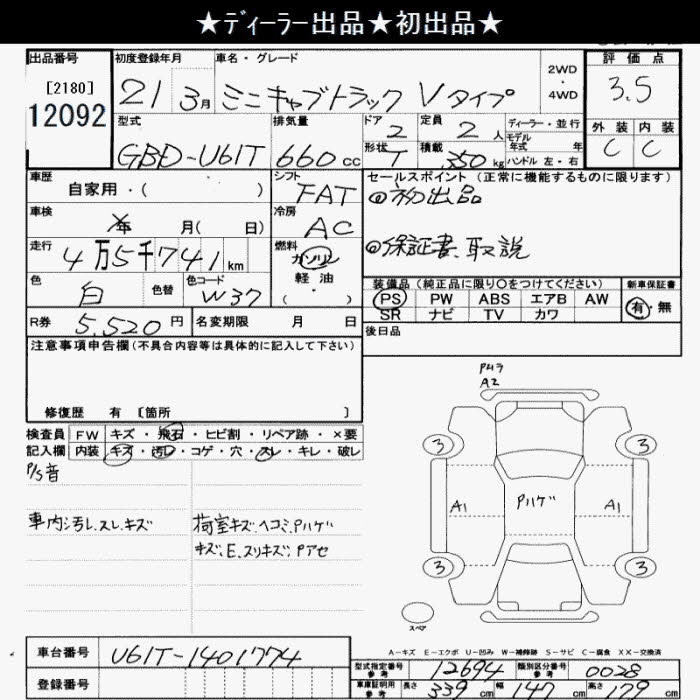 ★ディーラー出品★初出品★
出品番号 初度登録年月 車名・グレード 2WD・4WD 評価点
[2180] 21 3月 ミニキャブトラック Vタイプ 3.5
12092
型式 排気量 ドア 2 定員 2人 ディーラー・並行 外装 内装
モデル年式 年
GBD-U61T 660cc 形状 T 積載 350kg ハンドル 左・右 C C
車歴 シフト セールスポイント(正常に機能するものに限ります)
自家用・( ) FAT ◎初出品
車検 冷房
年 月( 日) AC
走行 燃料 ◎保証書、取説
4万5千741km ガソリン
軽油
( )
色 色替 色コード
白 W37
装備品(純正品に限り○をつけてください) 新車保証書
PS PW ABS エアB AW 有・無
SR ナビ TV カワ
R券 5.520円 名変期限 月 日 後日品
注意事項申告欄(不具合内容等は具体的に記入して下さい)
修復歴 有 〔箇所 〕
検査員 FW キズ・飛石・ヒビ割・リペア跡・×要
記入欄 内装 キズ・汚レ・コゲ・穴・スレ・キレ・破レ
P/S音
車内汚レ、スレ、キズ 荷室キズ、ヘコミ、Pハゲ
キズ、E、スリキズ、Pアセ
Pムラ
A2
3 3
A1 Pハゲ A1
3 3
スペア
A-キズ E-エクボ U-凹み W-補修跡 S-サビ C-腐食 XX-交換済
車台番号 U61T-1401774
型式指定番号 参考 12694 類別区分番号 参考 0028
登録番号
車庫証明用 参考 長さ 339cm 幅 147cm 高さ 179cm